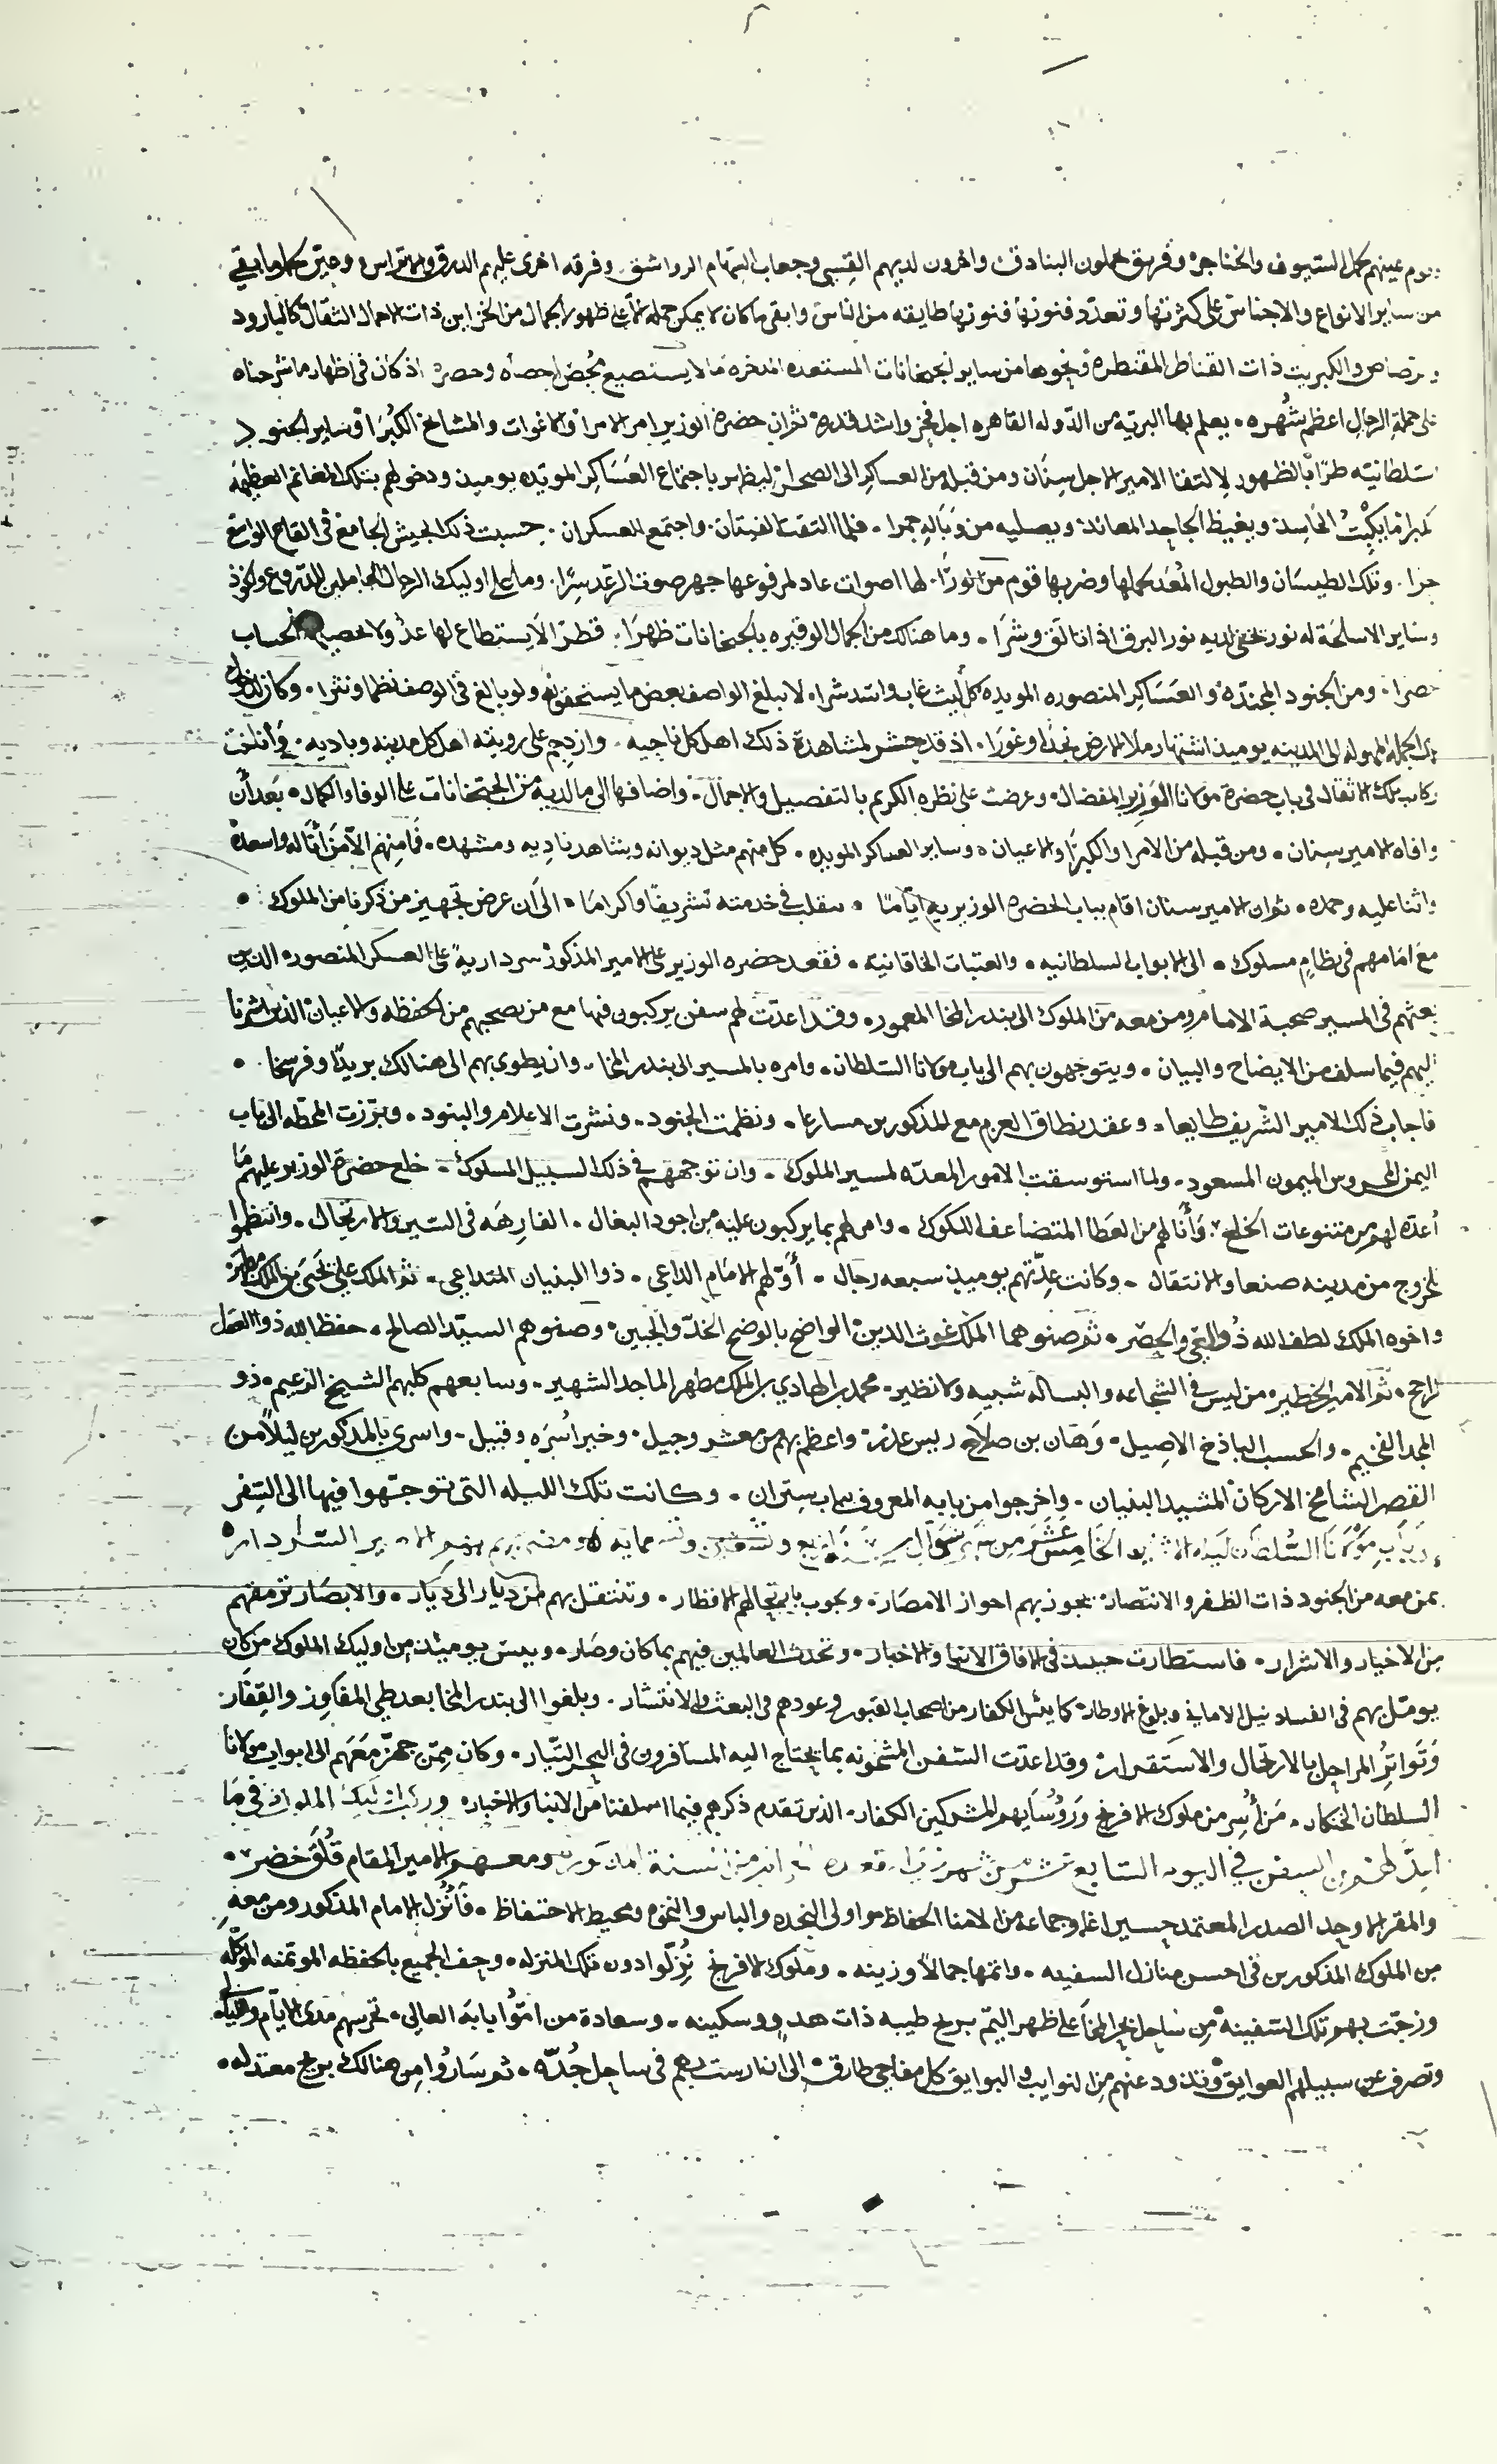 عينهم بحمل السيوف والخناجر وفريق يحملون البنادق واخرون لديهم القسي وجعاب السهام الرواشق وفرقه اخرى عليهم الدرق والاتراس وحين كمل ما بقي
من ساير الانواع والاجناس على كثرتها وتعدد فنونها فنونها طايفه من الناس وابقى ما كان لا يمكن حمله الا على ظهور الجمال من الخزاين ذات الاحمال الثقال كالبارود
والرصاص والكبريت ذات القناطر المقنطرة ونحوها من ساير الجبخانات المستعده المدخره مما لا يستصيع محض احصاه وحصره اذ كان في اظهار ما شرحناه
على حملة الرجال اعظم شهره يعلم بها البريه من الدوله القاهره اجل فخر واشد قدره ثم ان حضرة الوزير امر الامرا والاغوات والمشايخ الكبرا وساير الجنود
السلطانيه طرا بالظهور لالتقا الامير الاجل سنان ومن قبله من العساكر الى الصحرا ليظاهر باجتماع العساكر المويده يوميذ ودخولهم بتلك المغانم العظيمه
ما يكبت الحاسد ويغيظ الجاحد المعاند ويصليه من وباله جمرا فلما التقت الفيتان واجتمع العسكران حسبت ذلك الجيش الجامع في القاع الواسع
وتلك الطيسان والطبول المعد لحملها وضربها قوم من الورا لها اصوات عاد لمرفوعها جهر صوت الرعد سرا وما على اوليك الرجال الحاملين للدروع والخوذ
وساير الاسلحة له نور يختفي لديه نور البرق اذا تالق وشرا وما هنالك من الجمال الوقيره بالجبخانات ظهرا قطر لا يستطاع لها عد ولا يحصيها الحساب
حصرا ومن الجنود المجندة والعساكر المنصوره المويده كل ليث غاب واسد شرا لا يبلغ الواصف بعض ما يستحقونه ولو بالغ في الوصف نظما ونثرا وكان لدخول
الى المدينه يوميذ اشتهار ملا الارض نجدا وغورا اذ قد حشر لمشاهدة ذلك اهل كل ناحيه وازدحم على رويته اهل كل مدينه وباديه وأناخت
ركاب تلك الاثقال في باب حضرة مولانا الوزير المفضال وعرضت على نظره الكريم بالتفصيل والاجمال واضافها الى ما لديه من الجبخانات على الوفا والكمال بعد أن
وافاه الامير سنان ومن قبله من الامرا والكبرا والاعيان وساير العساكر المويده كل منهم مثل ديوانه وشاهد ناديه ومشهده فما منهم الا من أناله واسعده
واثنا عليه وحمده ثم ان الامير سنان اقام بباب الحضره الوزيريه اياما يتقلب في خدمته تشريفا واكراما الى ان عرض تجهيز من ذكرنا من الملوك
مع امامهم في نظام مسلوك الى الابواب السلطانيه والعتبات الخاقانيه فعقد حضره الوزير على الامير المذكور سرداريةً على العسكر المنصوره الذين
بعثهم في المسير صحبة الامام ومن معه من الملوك الى بندر المخا المعمور وقد اعدت لهم سفن يركبون فيها مع من يصحبهم من الحفظه والاعيان الذين اشرنا
اليهم فيما سلف من الايضاح والبيان ويتوجهون بهم الى باب مولانا السلطان وامره بالمسير الى بندر المخا وان يطوي بهم الى هنالك بريدا وفرسخا
فاجاب ذلك الامير الشريف طايعا وعقد نطاق العزم مع المذكورين مسارعا ونظمت الجنود ونشرت الاعلام والبنود وبرزت المحطه الى باب
اليمن المحروس الميمون المسعود ولما استوسقت الامور المعده لمسير الملوك وان توجههم في ذلك السبيل المسلوك خلع حضرة الوزير عليهم ما
أعده لهم من متنوعات الخلع وأنالهم من العطا المتضاعف للملوك وامر لهم بما يركبون عليه من اجود البغال الفارهه في السير والارتحال وانتظموا
للخروج من مدينه صنعا والانتقال وكانت عدتهم يوميذ سبعه رجال أولهم الامام الداعي ذوا البنيان المتداعي ثم الملك علي يحيى بن الملك مطهر
واخوه الملك لطف الله ذو العي والحصر ثم صنوهما الملك غوث الدين الواضح بالوضح الخد والجبين وصنوهم السيد الصالح حفظ الله ذو العقل
الراجح ثم الامير الخطير من ليس في الشجاعه والبساله شبيه ولا نظير محمد بن الهادي بن الملك مطهر الماجد الشهير وسابعهم كلبهم الشيخ الزعيم ذو
المجد الفخيم والحسب الباذخ الاصيل وهان بن صلاح رييس عذر واعظم بهم من معشر وجيل وخير اسره وقبيل واسري بالمذكورين ليلاً من
القصر الشامخ الاركان المشيد البنيان واخرجوا من بابه المعروف بباب ستران وكانت تلك الليله التي توجهوا فيها الى السفر
باب مولانا السلطان ليلة الاثنين الخامس عشر من شهر شوال سنة اربع وتسعين وتسعمايه ومضى بهم الامير السردار
بمن معه من الجنود ذات الظفر والانتصار يجوز بهم احواز الامصار ويجوب بارتحالهم الاقطار وتنتقل بهم من ديار الى ديار والابصار ترمقهم
من الاخيار والاشرار فاستطارت حينيذ في الافاق الانبا والاخبار وتحدث العالمين فيهم بما كان وصار وييس يوميذ من اوليك الملوك من كان
يومل بهم في الفساد نيل الاماني وبلوغ الاوطار كما يئس الكفار من اصحاب القبور وعودهم في البعث والانتشار وبلغوا الى بندر المخا بعد طي المفاوز والقفار
وتواتر المراحل بالارتحال والاستقرار وقد اعدت السفن المشحونه بما يحتاج اليه المسافرون في البحر التيار وكان ممن جهز معهم الى ابواب مولانا
السلطان الخنكار من أسر من ملوك الافرنج ورؤسايهم المشركين الكفار الذين تقدم ذكرهم فيما اسلفنا من الانبا والاخبار وركب اوليك الملوك في ما
اعد لهم من السفن في اليوم السابع عشر من شهر القعده من السنة المذكوره ومعهم الامير المقام قلق خضر
والمقر الاوحد الصدر المعتمد حسين اغا وجماعه من الامنا الحفاظ من اولي النجده والباس والنخوه ومحيط الاحتفاظ فأنزل الامام المذكور ومن معه
من الملوك المذكورين في احسن منازل السفينه واتمها جمالاً وزينه وملوك الافرنج نزلوا دون تلك المنزله وحف الجميع بالحفظه الموتمنه الموكله
وزجت بهم تلك السفينة من ساحل بحر المخا على ظهر اليم بريح طيبه ذات هدوٍ وسكينه وسعادة من امّوا بابه العالي تحرسهم مدى الايام والليالي
وتصرف عن سبيلهم العوايق وتذود عنهم من النوايب والبوايق كل مفاجي طارق الى ان ارست بهم في ساحل جُدّه ثم ساروا من هنالك بريح معتدله